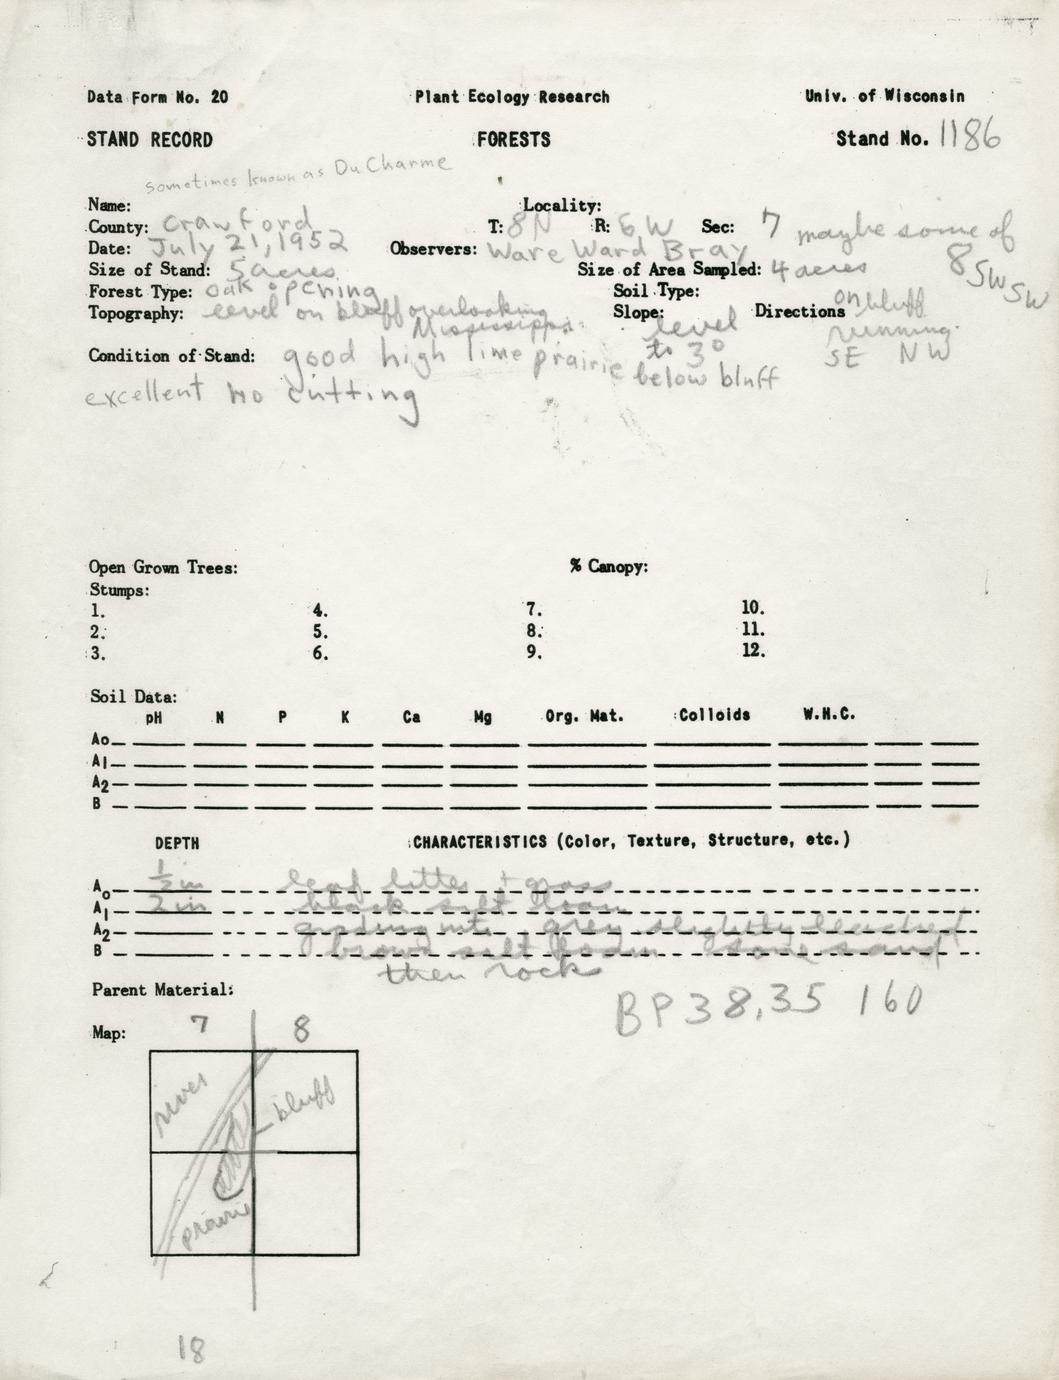 Data Form No. 20 Plant Ecology Research Univ. of Wisconsin
STAND RECORD FORESTS Stand No. 1186
sometimes known as Du Charme
Name: Locality:
County: Crawford T: 8N R: 6W Sec: 7 maybe some of 8 SW SW
Date: July 21, 1952 Observers: Ware Ward Bray
Size of Stand: 5 acres Size of Area Sampled: 4 acres
Forest Type: oak opening Soil Type:
Topography: level on bluff overlooking Mississippi Slope: level to 3° Directions on bluff running SE NW
Condition of Stand: good high lime prairie below bluff
excellent no cutting
Open Grown Trees: % Canopy:
Stumps:
1. 4. 7. 10.
2. 5. 8. 11.
3. 6. 9. 12.
Soil Data:
pH N P K Ca Mg Org. Mat. Colloids W.H.C.
Ao
A1
A2
B
DEPTH CHARACTERISTICS (Color, Texture, Structure, etc.)
Ao 1/2 in leaf litter + grass
A1 2 in black silt loam
A2 grading into grey slightly leached
B brown silt loam some sand
then rocks
Parent Material:
BP 38, 35 160
Map: 7 8
river
bluff
prairie
18